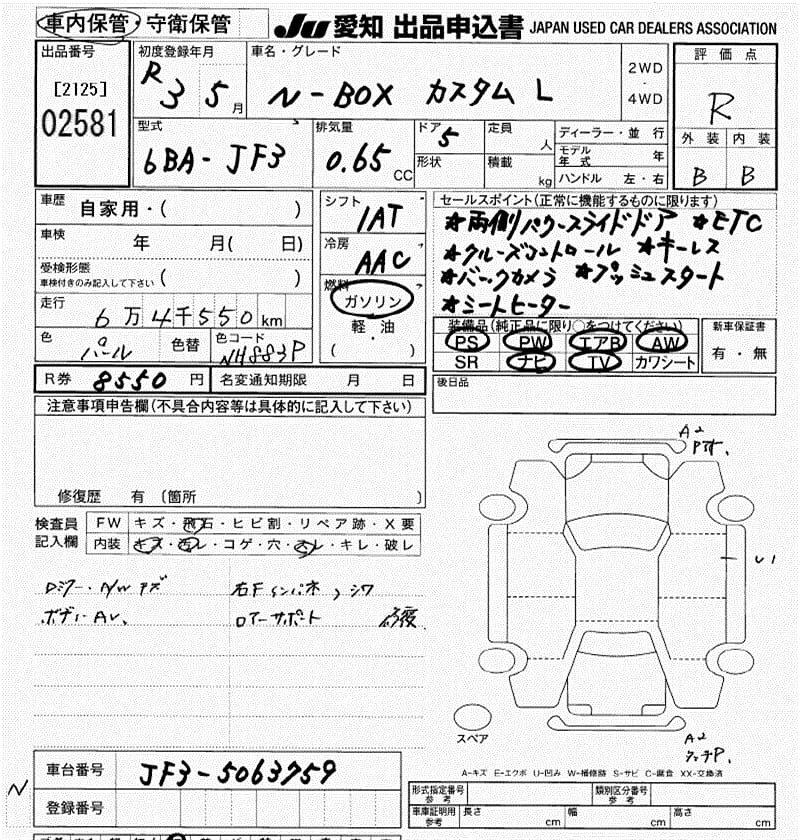 車内保管・守衛保管
JU 愛知 出品申込書 JAPAN USED CAR DEALERS ASSOCIATION
出品番号
[2125]
02581
初度登録年月
R3 5月
車名・グレード
N-BOX カスタム L
2WD
4WD
評価点
R
型式
6BA-JF3
排気量
0.65 CC
ドア 5
形状
定員 人
積載 kg
ディーラー・並行
モデル年式 年
ハンドル 左・右
外装 内装
B B
車歴 自家用・( )
車検 年 月( 日)
受検形態
車検付きのみ記入して下さい ( )
走行 6万4千550km
色 パール 色替 色コード NH883P
シフト
IAT
冷房
AAC
燃料
ガソリン
軽・油
( ・ )
セールスポイント(正常に機能するものに限ります)
★両側パワースライドドア ★ETC
★クルーズコントロール ★キーレス
★バックカメラ ★プッシュスタート
★シートヒーター
装備品(純正品に限り○をつけてください)
PS PW エアB AW
SR ナビ TV カワシート
新車保証書
有・無
R券 8550円 名変通知期限 月 日
後日品
注意事項申告欄(不具合内容等は具体的に記入して下さい)
修復歴 有 〔箇所 〕
検査員
記入欄
FW キズ・飛石・ヒビ割・リペア跡・X要
内装 キズ・汚レ・コゲ・穴・スレ・キレ・破レ
A2
U1
A2
スペア
A-キズ E-エクボ U-凹み W-補修跡 S-サビ C-腐食 XX-交換済
車台番号 JF3-5063759
登録番号
N
形式指定番号 参考
類別区分番号 参考
車庫証明用 参考 長さ cm 幅 cm 高さ cm